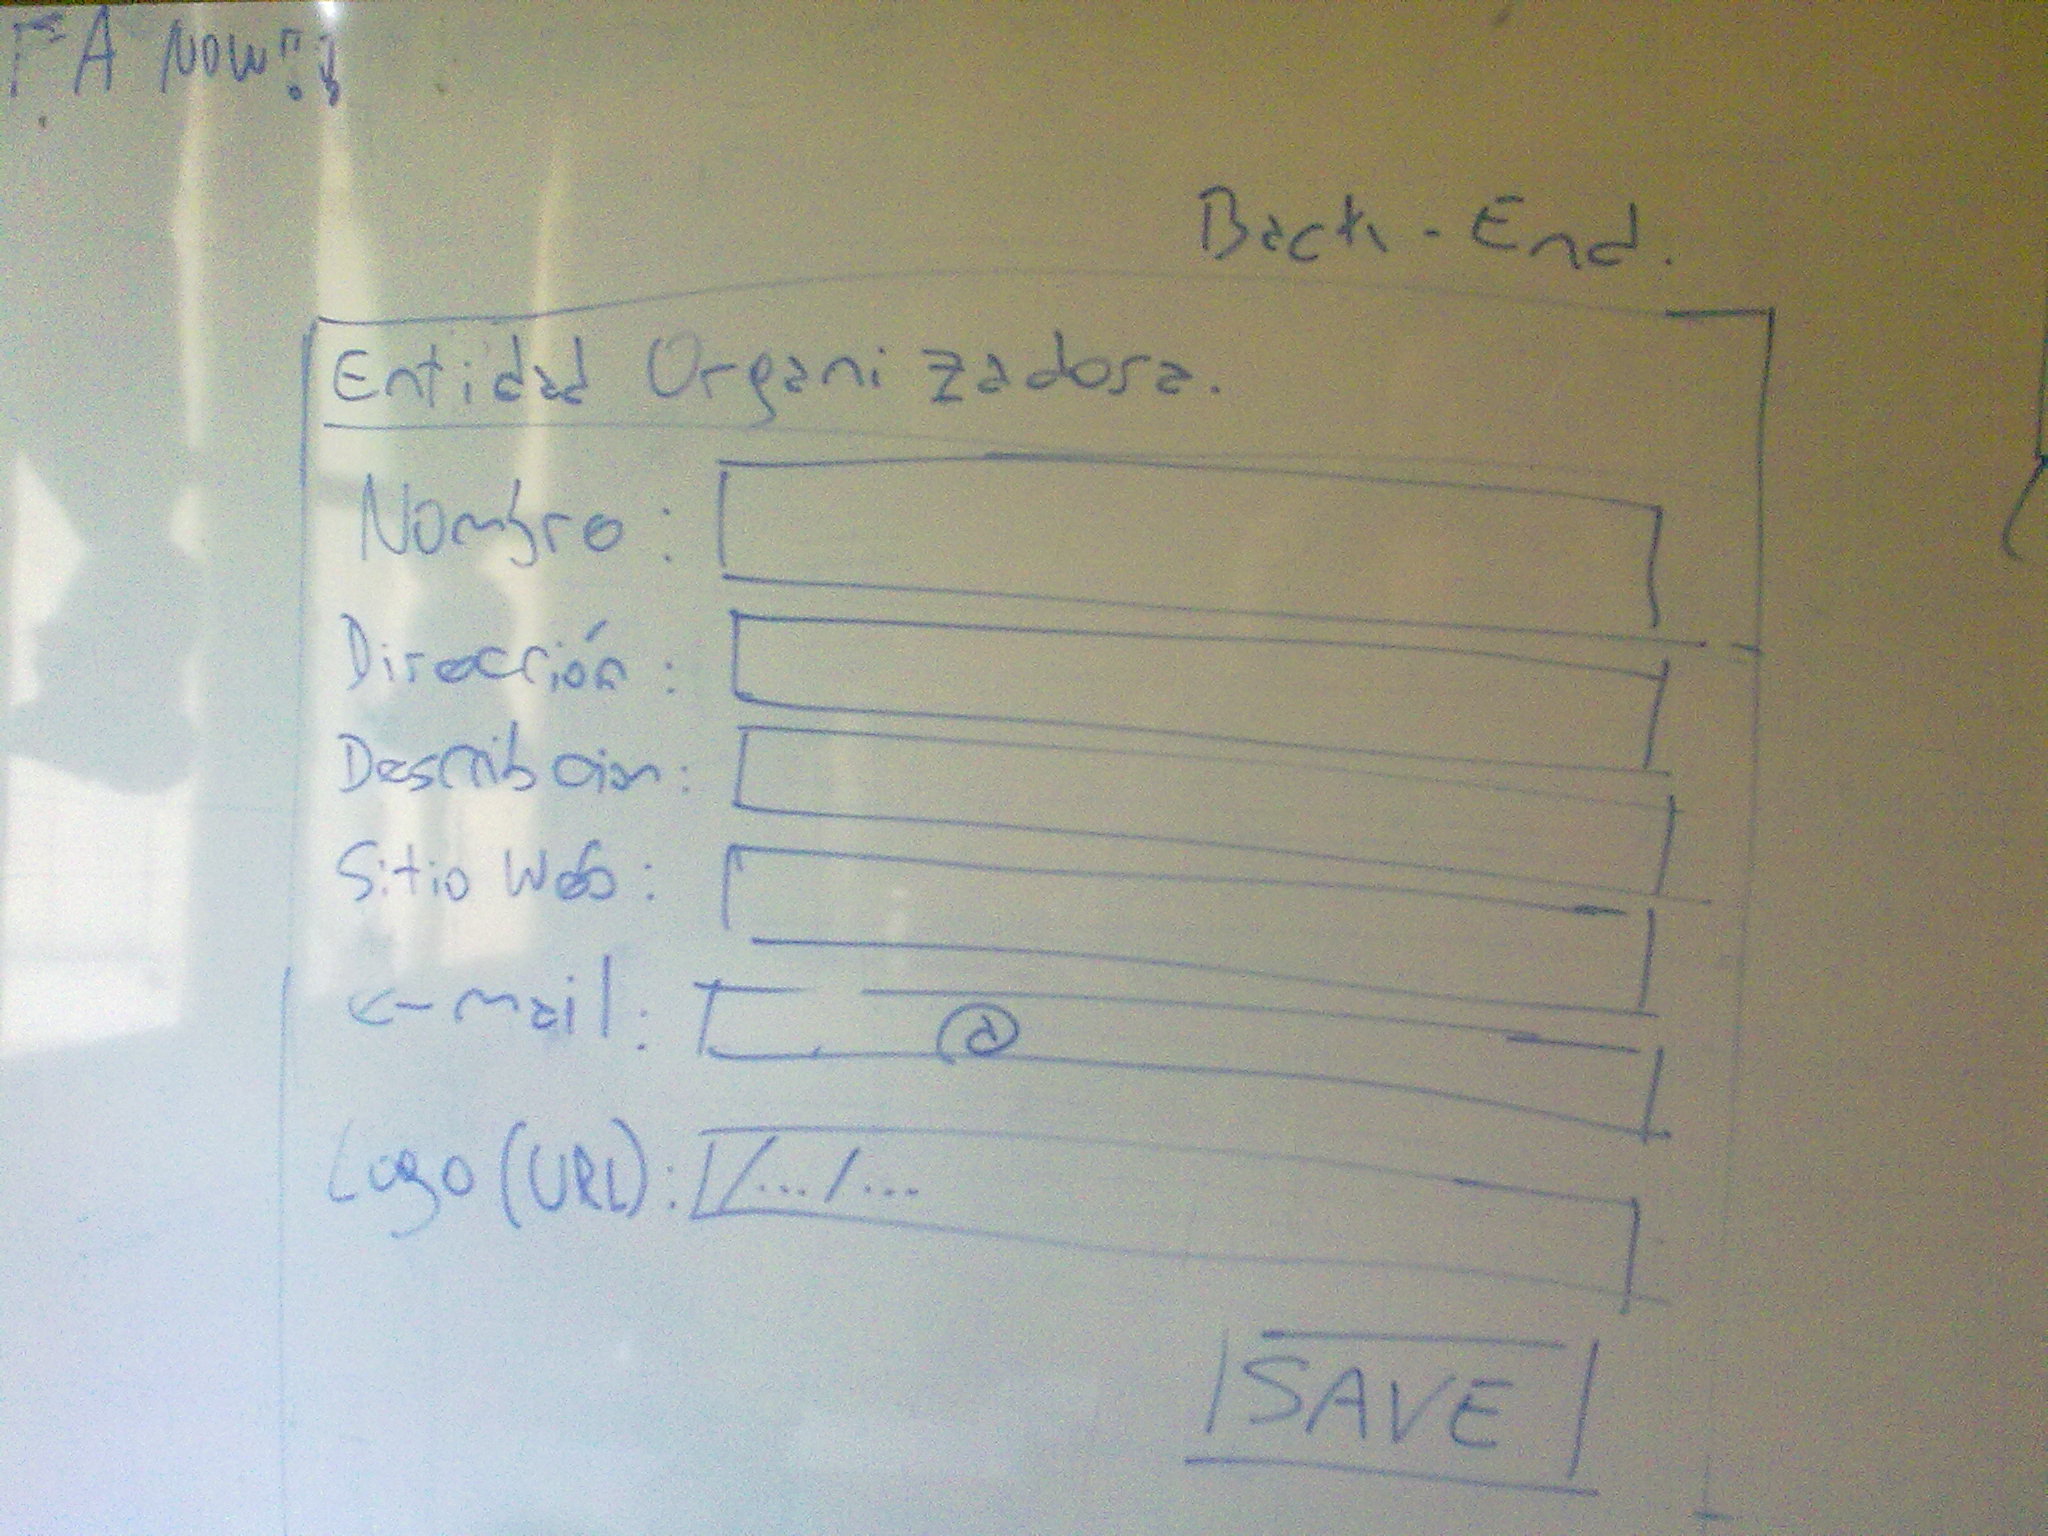 A NOW
Back-End.
Entidad Organizadora.
Nombre:
Dirección:
Describcion:
Sitio Web:
e-mail: @
Logo (URL): /.../...
SAVE